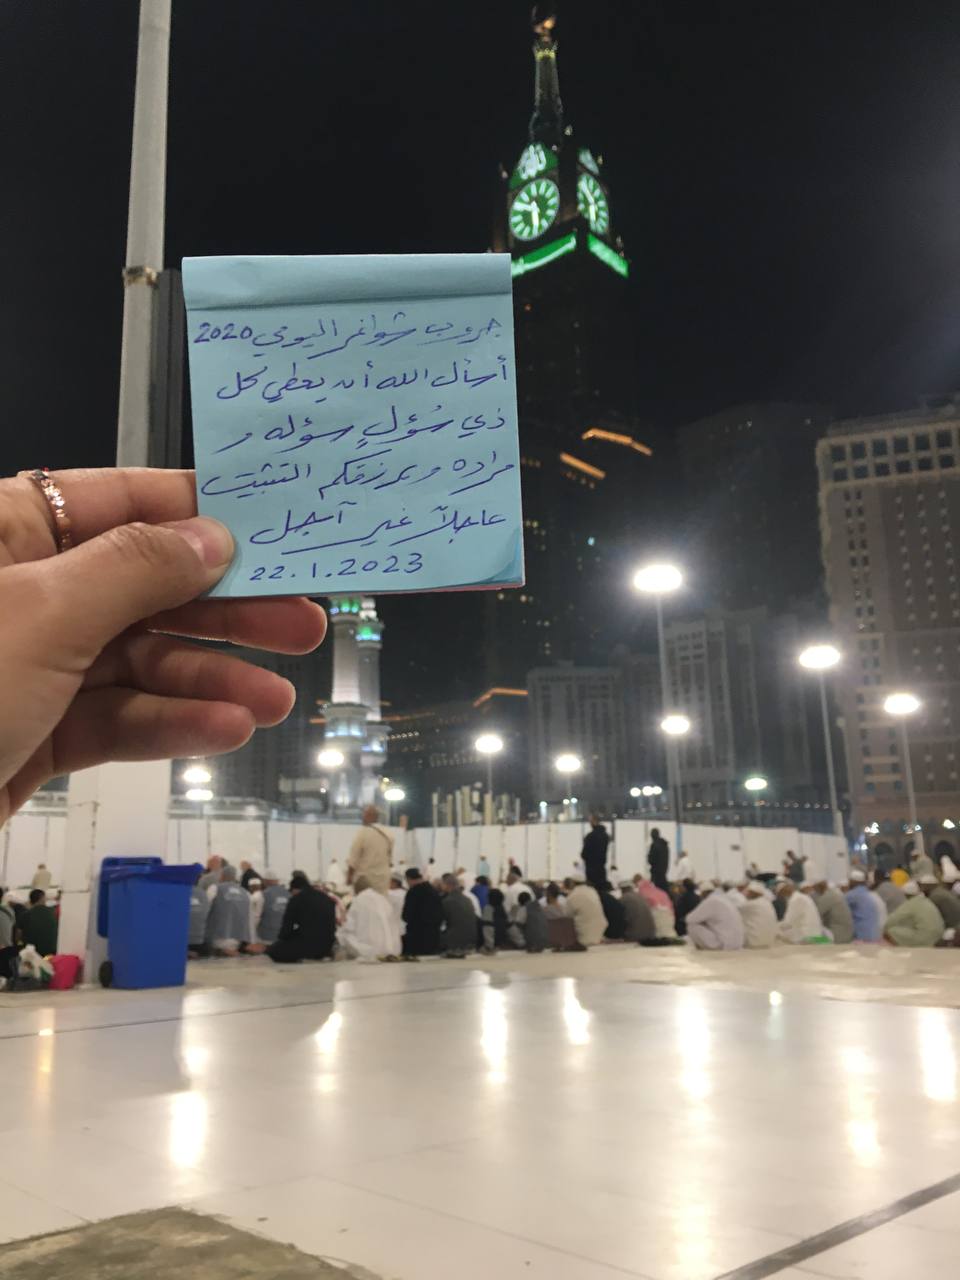 الله
جروب شواغر اليومي 2020
أسأل الله أن يعطي كل
ذي سُؤلٍ سؤله و
مراده ويرزقكم التثبيت
عاجلاً غير آجل
22.1.2023